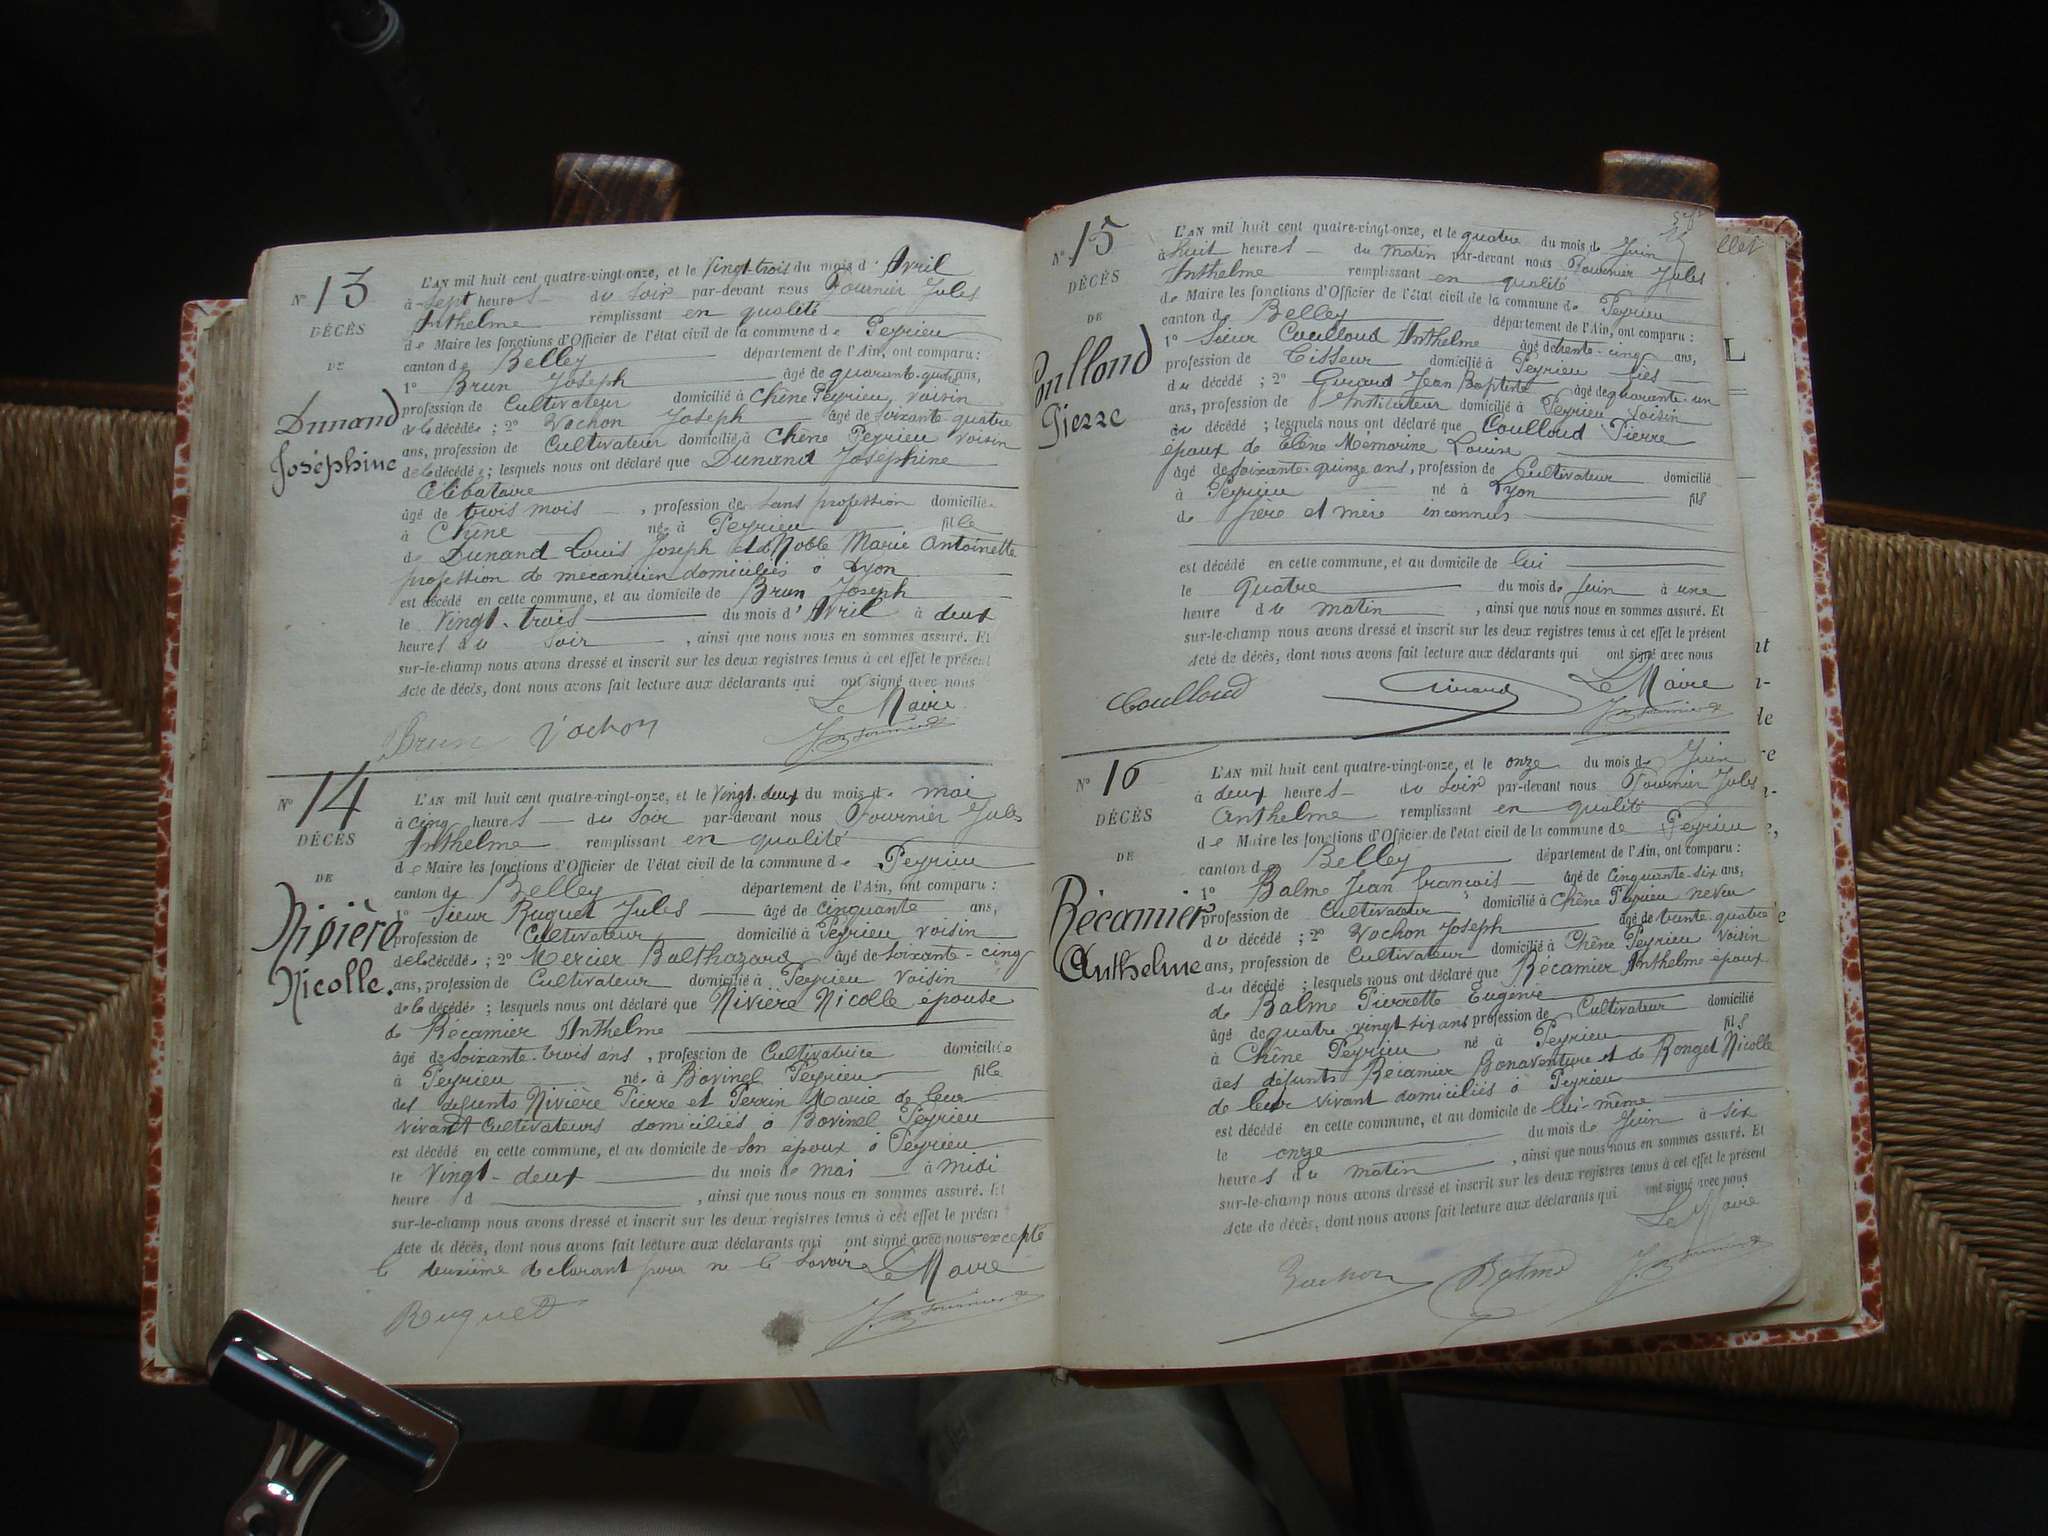 N° 13
DÉCÈS
DE
Dunand
Joséphine
L'AN mil huit cent quatre-vingt-onze, et le Vingt-trois du mois d' Avril
à Sept heures du Soir par-devant nous Fournier Jules
Anthelme remplissant en qualité
de Maire les fonctions d'Officier de l'état civil de la commune de Peyrieu
canton de Belley département de l'Ain, ont comparu :
1° Brun Joseph âgé de quarante-quatre ans,
profession de Cultivateur domicilié à Chêne Peyrieu, voisin
de la décédée ; 2° Vachon Joseph âgé de soixante quatre
ans, profession de Cultivateur domicilié à Chêne Peyrieu voisin
de la décédée ; lesquels nous ont déclaré que Dunand Joséphine
Célibataire
âgé de trois mois , profession de Sans profession domiciliée
à Chêne née à Peyrieu fille
de Dunand Louis Joseph et de Noble Marie Antoinette
profession de mécanicien domiciliés à Lyon
est décédé en cette commune, et au domicile de Brun Joseph
le Vingt-trois du mois d' Avril à deux
heures du Soir , ainsi que nous nous en sommes assuré. Et
sur-le-champ nous avons dressé et inscrit sur les deux registres tenus à cet effet le présent
Acte de décès, dont nous avons fait lecture aux déclarants qui ont signé avec nous
Le Maire
Brun Vachon J. Fournier
N° 14
DÉCÈS
DE
Nivière
Nicolle.
L'AN mil huit cent quatre-vingt-onze, et le Vingt-deux du mois de mai
à cinq heures du Soir par-devant nous Fournier Jules
Anthelme remplissant en qualité
de Maire les fonctions d'Officier de l'état civil de la commune de Peyrieu
canton de Belley département de l'Ain, ont comparu :
1° Sieur Ruguet Jules âgé de cinquante ans,
profession de Cultivateur domicilié à Peyrieu voisin
de la décédée ; 2° Mercier Balthazard âgé de soixante-cinq
ans, profession de Cultivateur domicilié à Peyrieu Voisin
de la décédée ; lesquels nous ont déclaré que Nivière Nicolle épouse
de Récamier Anthelme
âgé de soixante-trois ans , profession de Cultivatrice domiciliée
à Peyrieu née à Bovinel Peyrieu fille
des défunts Nivière Pierre et Perrin Marie de leur
vivant Cultivateurs domiciliés à Bovinel Peyrieu
est décédé en cette commune, et au domicile de son époux à Peyrieu
le Vingt-deux du mois de mai à midi
heure d , ainsi que nous nous en sommes assuré. Et
sur-le-champ nous avons dressé et inscrit sur les deux registres tenus à cet effet le présent
Acte de décès, dont nous avons fait lecture aux déclarants qui ont signé avec nous excepté
le deuxième déclarant pour ne le savoir Le Maire
Ruguet J. Fournier
N° 15
DÉCÈS
DE
Coulloud
Pierre
L'AN mil huit cent quatre-vingt-onze, et le quatre du mois de Juin
à huit heures du matin par-devant nous Fournier Jules
Anthelme remplissant en qualité
de Maire les fonctions d'Officier de l'état civil de la commune de Peyrieu
canton de Belley département de l'Ain, ont comparu :
1° Sieur Coulloud Anthelme âgé de trente-cinq ans,
profession de Tisseur domicilié à Peyrieu fils
du décédé ; 2° Giraud Jean Baptiste âgé de quarante-un
ans, profession de Instituteur domicilié à Peyrieu voisin
du décédé ; lesquels nous ont déclaré que Coulloud Pierre
époux de Louise
âgé de soixante-quinze ans, profession de Cultivateur domicilié
à Peyrieu né à Lyon fils
de père et mère inconnus
est décédé en cette commune, et au domicile de lui
le quatre du mois de Juin à une
heure du matin , ainsi que nous nous en sommes assuré. Et
sur-le-champ nous avons dressé et inscrit sur les deux registres tenus à cet effet le présent
Acte de décès, dont nous avons fait lecture aux déclarants qui ont signé avec nous
Le Maire
Coulloud Giraud J. Fournier
N° 16
DÉCÈS
DE
Récamier
Anthelme
L'AN mil huit cent quatre-vingt-onze, et le onze du mois de Juin
à deux heures du soir par-devant nous Fournier Jules
Anthelme remplissant en qualité
de Maire les fonctions d'Officier de l'état civil de la commune de Peyrieu
canton de Belley département de l'Ain, ont comparu :
1° Balme Jean François âgé de cinquante-six ans,
profession de Cultivateur domicilié à Chêne Peyrieu neveu
du décédé ; 2° Vachon Joseph âgé de trente-quatre
ans, profession de Cultivateur domicilié à Chêne Peyrieu voisin
du décédé ; lesquels nous ont déclaré que Récamier Anthelme époux
de Balme Pierrette Eugénie
âgé de quatre vingt six ans profession de Cultivateur domicilié
à Chêne Peyrieu né à Peyrieu fils
des défunts Récamier Bonaventure et de Ronget Nicolle
de leur vivant domiciliés à Peyrieu
est décédé en cette commune, et au domicile de lui-même
le onze du mois de Juin à six
heures du matin , ainsi que nous nous en sommes assuré. Et
sur-le-champ nous avons dressé et inscrit sur les deux registres tenus à cet effet le présent
Acte de décès, dont nous avons fait lecture aux déclarants qui ont signé avec nous
Le Maire
Vachon Balme J. Fournier